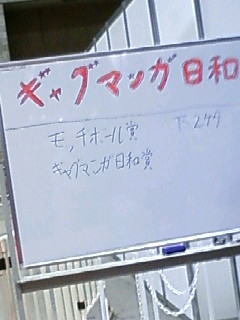 ギャグマンガ日和
モッチホール賞
ギャグマンガ日和賞